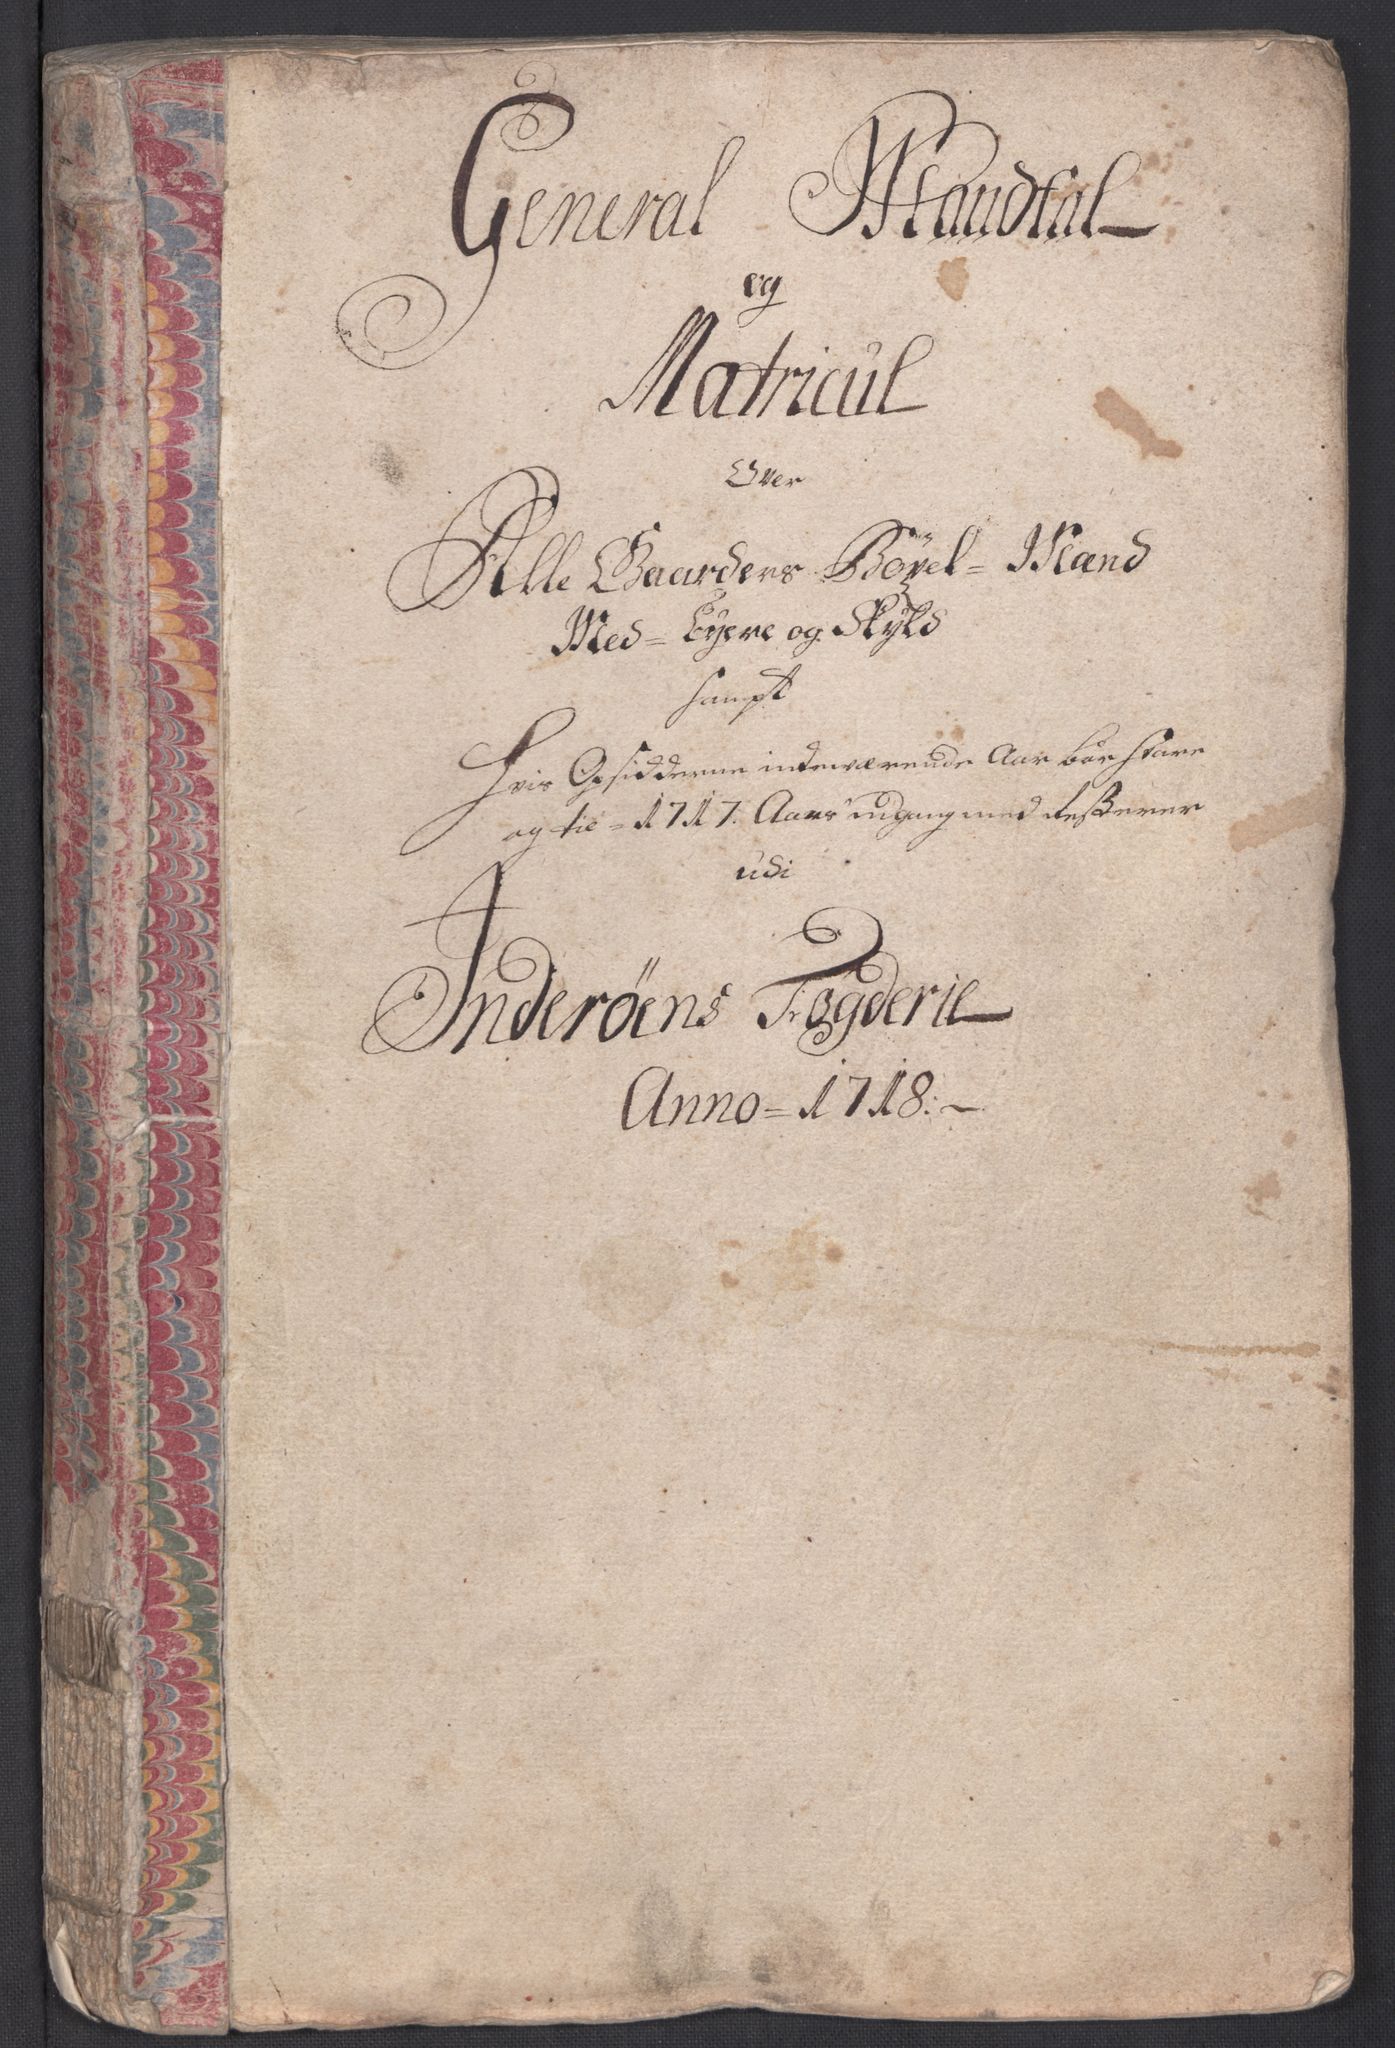 General Mandtal
og
Matricul
Over
Alle Gaarders Böxel= Mand
Med= Eyere og Skyld
sampt
Hvis Opsidderne indeværende Aar bør svare
og til = 1717. Aars udgang med resterer
udi
Inderöens Fogderie
Anno = 1718: